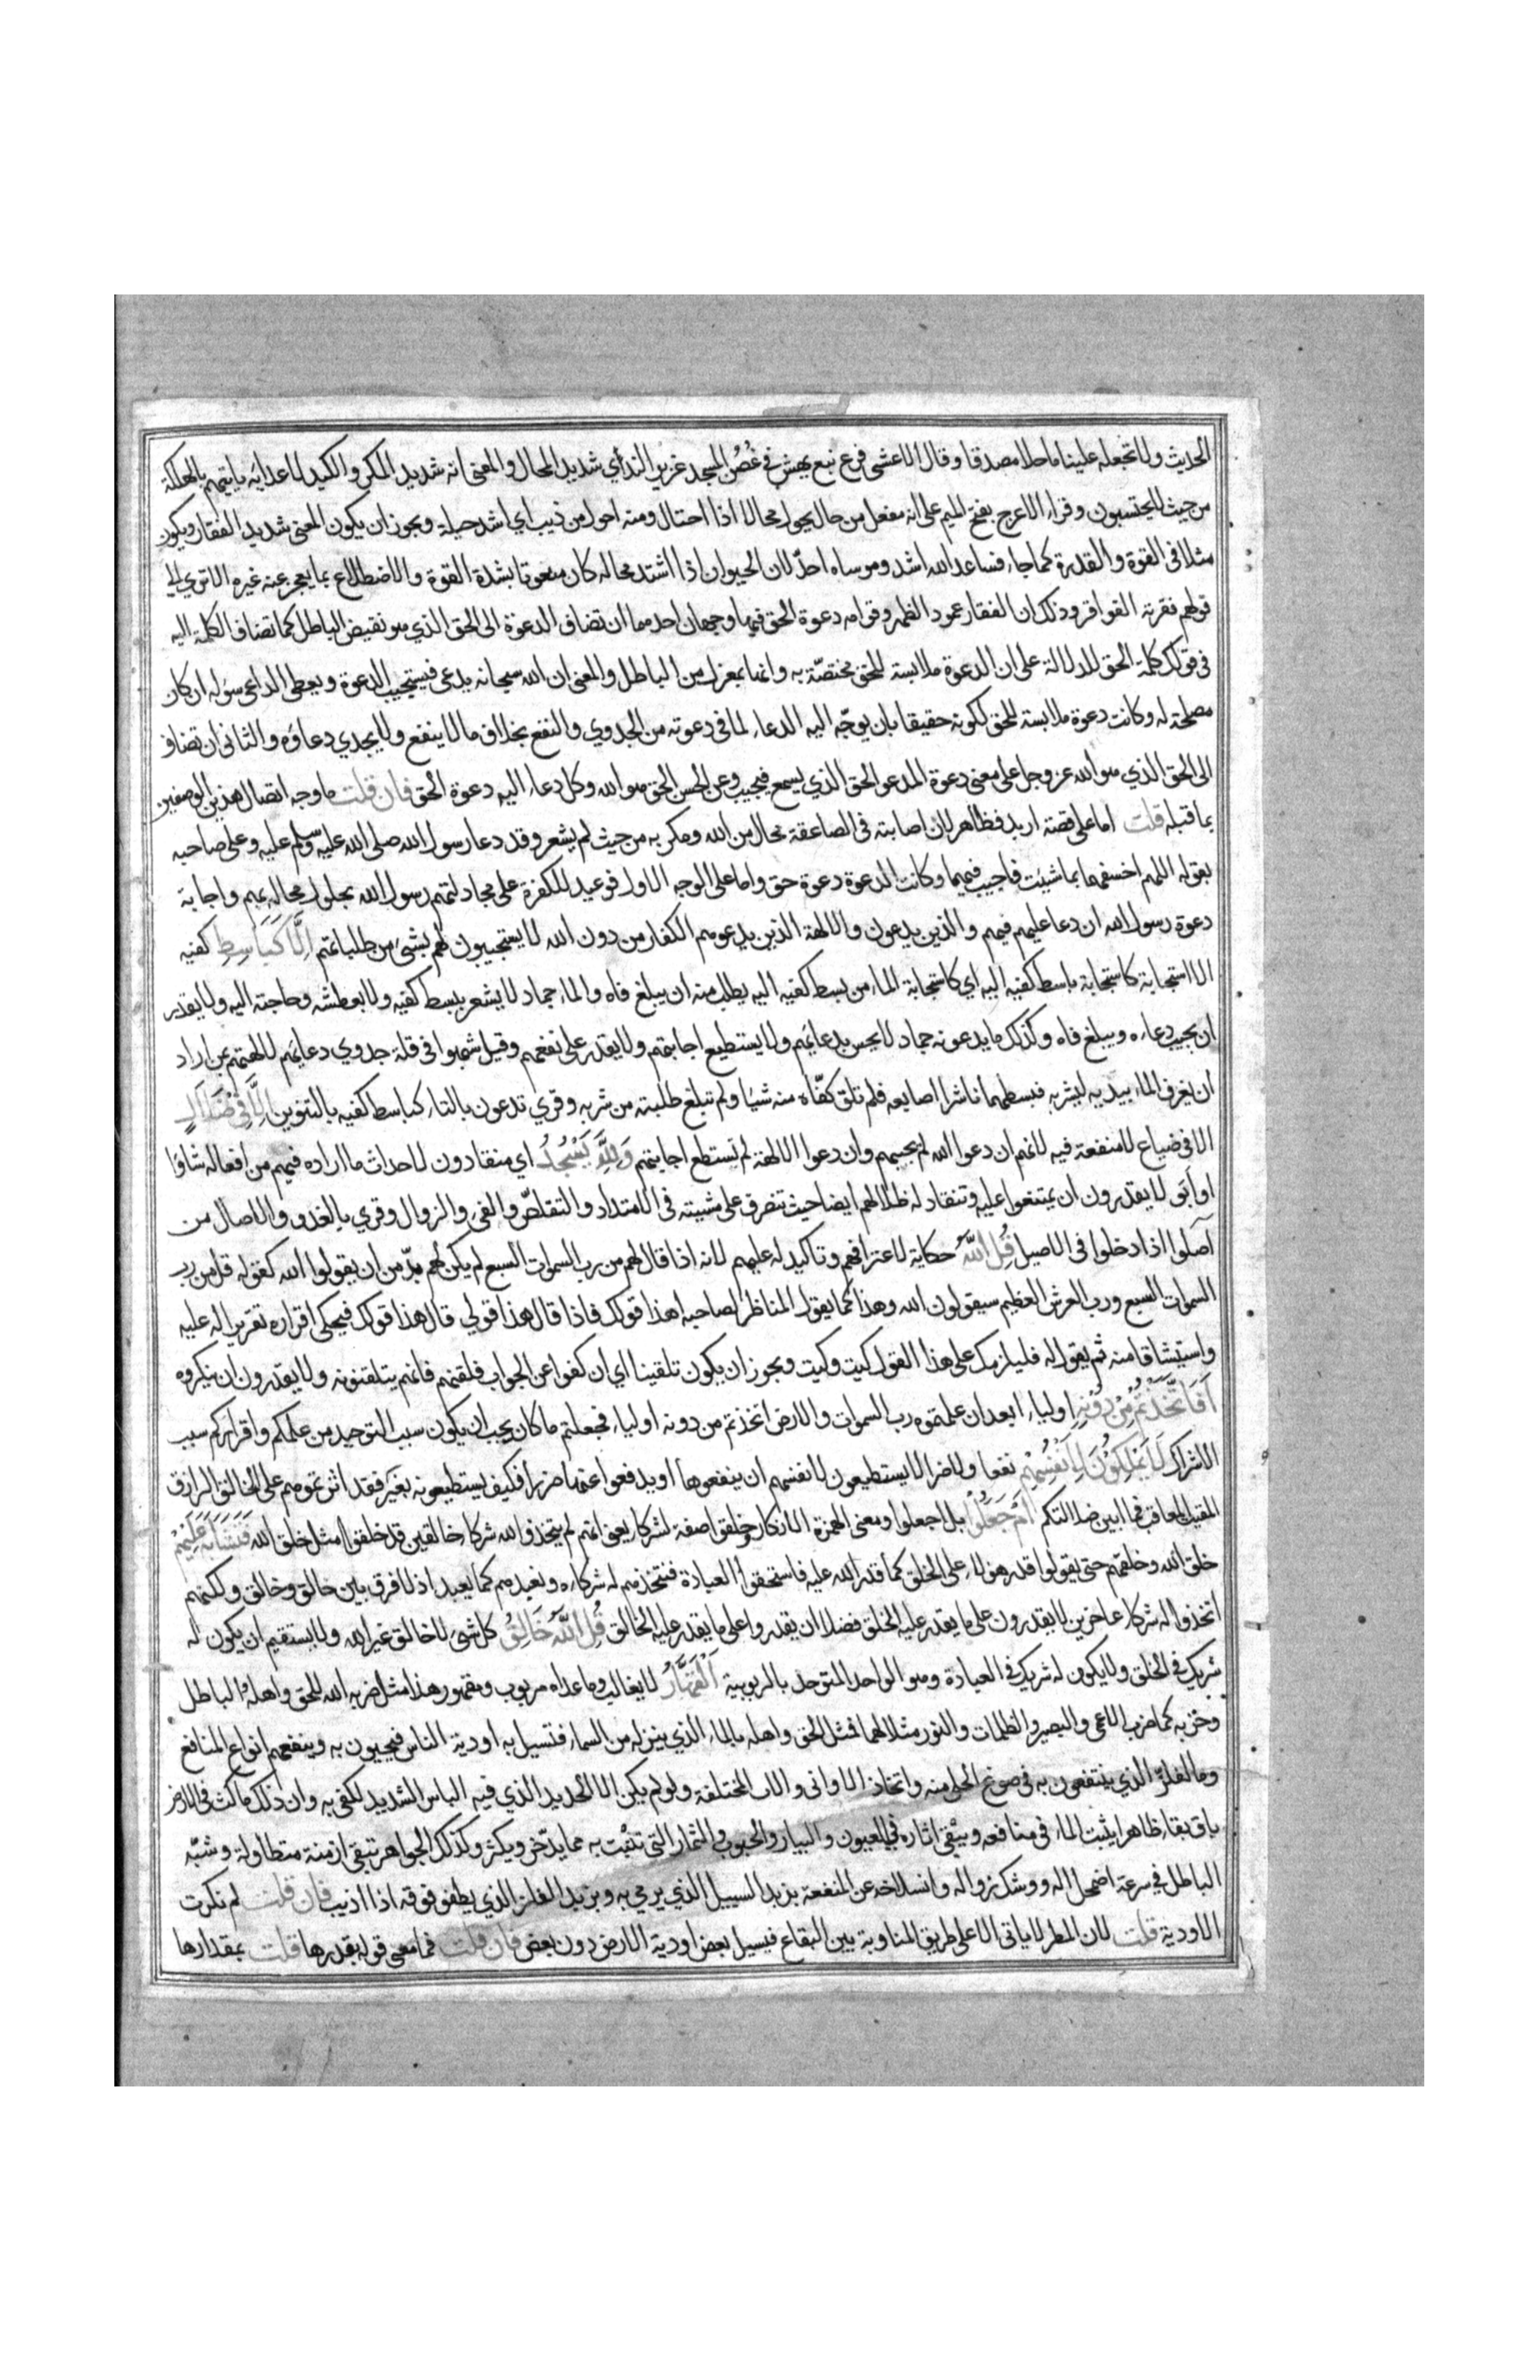 الحديث ولا تجعله علينا ماحلا مصدقا وقال الاعشى فرع نبع يهش في غُصُن المجد غزير الندي شديد المحال والمعنى انه شديد المكر والكيد لاعدايه ياتيهم بالهلكة
من حيث لا يحتسبون وقراء الاعرج بفتح الميم على انه مفعل من حال يحول محالا اذا احتال ومنه احول من ذيب اي اشد حيلة ويجوز ان يكون المعنى شديد الفقار ويكون
مثلا في القوة والقدرة كما جاء فساعد الله اشد وموساه احدّ لان الحيوان اذا اشتد محاله كان منعوتا بشدة القوة والاضطلاع بما يعجز عنه غيره الا تري الي
قولهم فقرته الفواقر وذلك ان الفقار عمود الظهر وقوامه دعوة الحق فيها وجهان احدهما ان تضاف الدعوة الى الحق الذي هو نقيض الباطل كما تضاف الكلمة اليه
في قولك كلمة الحق للدلالة على ان الدعوة ملابسة للحق مختصّة به وانها بمعزل من الباطل والمعنى ان الله سبحانه يدعى فيستجيب الدعوة ويعطى الداعى سؤله ان كان
مصلحة له وكانت دعوة ملابسة للحق لكونه حقيقا بان يوجّه اليه الدعاء لما في دعوته من الجدوي والنفع بخلاف ما لا ينفع ولا يجدي دعاؤه والثانى ان تضاف
الى الحق الذي هو الله عز وجل على معنى دعوة المدعو الحق الذي يسمع فيجيب وعن الحسن الحق هو الله وكل دعاء اليه دعوة الحق فان قلت ما وجه اتصال هذين الوصفين
بما قبله قلت اما على قصة اربد فظاهر لان اصابته في الصاعقة محال من الله ومكر به من حيث لم يشعر وقد دعا رسول الله صلى الله عليه وسلم عليه وعلى صاحبه
بقوله اللهم اخسفهما بما شيت فاجيب فيهما وكانت الدعوة دعوة حق واما على الوجه الاول فوعيد للكفرة على مجادلتهم رسول الله بحلول محاله بهم واجابة
دعوة رسول الله ان دعا عليهم فيهم والذين يدعون والالهة الذين يدعوهم الكفار من دون الله لا يستجيبون لهم بشئ من طلباتهم اِلَّا كَبَاسِطِ كفيه
الا استجابة كاستجابة باسط كفيه اليه اي كاستجابة الماء من بسط كفيه اليه يطلب منه ان يبلغ فاه والماء جماد لا يشعر ببسط كفيه ولا بعطشه وحاجته اليه ولا يقدر
ان يجيب دعاءه ويبلغ فاه وكذلك ما يدعونه جماد لا يحس بدعائهم ولا يستطيع اجابتهم ولا يقدر على نفعهم وقيل شبهوا في قلة جدوي دعائهم لالهتهم بمن اراد
ان يغرف الماء بيديه ليشربه فبسطهما ناشرا اصابعه فلم تلق كفّاه منه شيئا ولم تبلغ طلبته من شربه وقري تدعون بالتاء كباسط كفيه بالتنوين اِلَّا فِي ضَلَالٍ
الا في ضياع لا منفعة فيه لانهم ان دعوا الله لم يجبهم وان دعوا الالهة لم تستطع اجابتهم وَلِلَّهِ يَسْجُدُ اي منقادون لاحداث ما اراده فيهم من افعاله شاؤا
او ابَى لا يقدرون ان يمتنعوا عليه وتنقاد له ظلالهم ايضا حيث تتصرف على مشيته في الامتداد والتقلصّ والفئ والزوال وقري بالغدو والاصال من
آصلوا اذا دخلوا في الاصيل قُلِ اللَّهُ حكاية لاعترافهم وتاكيد له عليهم لانه اذا قال لهم من رب السموات السبع لم يكن لهم بدّ من ان يقولوا الله كقوله قل من رب
السموات السبع ورب العرش العظيم سيقولون الله وهذا كما يقول المناظر لصاحبه اهذا قولك فاذا قال هذا قولي قال هذا قولك فيحكى اقراره تقريرا له عليه
واستيثاقا منه ثم يقول له فليلزمك على هذا القول كيت وكيت ويجوز ان يكون تلقينا اي ان كفوا عن الجواب فلقنهم فانهم يتلقنونه ولا يقدرون ان ينكروه
اَفَاتَّخَذْتُمْ مِنْ دُوُنِهِ اولياء ابعد ان علمتموه رب السموات والارض اتخذتم من دونه اولياء فجعلتم ما كان يجب ان يكون سبب التوحيد من علمكم واقراركم سبب
الاشراك لَا يَمْلِكُونَ لِاَنْفُسِهِمْ نفعا ولا ضرا لا يستطيعون لانفسهم ان ينفعوها او يدفعوا عنها ضررا فكيف يستطيعونه لغيره فقد اثرتموهم على الخالق الرازق
المثيب المعاقب فما ابين ضلالتكم اَمْ جَعَلُوا بل اجعلوا ومعنى الهمزة الانكار وخلقوا صفة لشركاء يعنى انهم لم يتخذوا لله شركاء خالقين قد خلقوا مثل خلق الله فَتَشَابَهَ عَلَيْهِمْ
خلق الله وخلقهم حتى يقولوا قدر هؤلاء على الخلق كما قدر الله عليه فاستحقوا العبادة فنتخذهم له شركاء ونعبدهم كما يعبد اذ لا فرق بين خالق وخالق ولكنهم
اتخذوا له شركاء عاجزين لا يقدرون على ما يقدر عليه الخلق فضلا ان يقدروا على ما يقدر عليه الخالق قُلِ اللَّهُ خَالِقُ كل شئ لا خالق غير الله ولا يستقيم ان يكون له
شريك في الخلق ولا يكون له شريك في العبادة وهو الواحد المتوحد بالربوبية اَلْقَهَّارُ لا يغالب وما عداه مربوب ومقهور هذا مثل ضربه الله للحق واهله والباطل
وحزبه كما ضرب الاعمى والبصير والظلمات والنور مثلا لهما فمثل الحق واهله بالماء الذي ينزله من السماء فتسيل به اودية الناس فيحيون به وينفعهم انواع المنافع
وما لفلزّ الذي ينتفعون به في صوغ الحلى منه واتخاذ الاوانى والالات المختلفة ولو لم يكن الا الحديد الذي فيه الباس الشديد لكفى به وان ذلك ماكث في الارض
باق بقاء ظاهرا يثبت الماء في منافعه ويبْقى اثاره في العيون والبيار والحبوب والثمار التى تنبُت به مما يدّخر ويكثر وكذلك الجواهر تبقى ازمنة متطاولة وشبّه
الباطل في سرعة اضمحلاله ووشك زواله وانسلاخه عن المنفعة بزبد السييل الذي يرمي به وبزبد الفلز الذي يطفو فوقه اذا اذيب فان قلت لم نكرت
الاودية قلت لان المطر لا ياتى الا على طريق المناوبة بين البقاع فيسيل بعض اودية الارض دون بعض فان قلت فما معى قوله بقدرها قلت بمقدارها